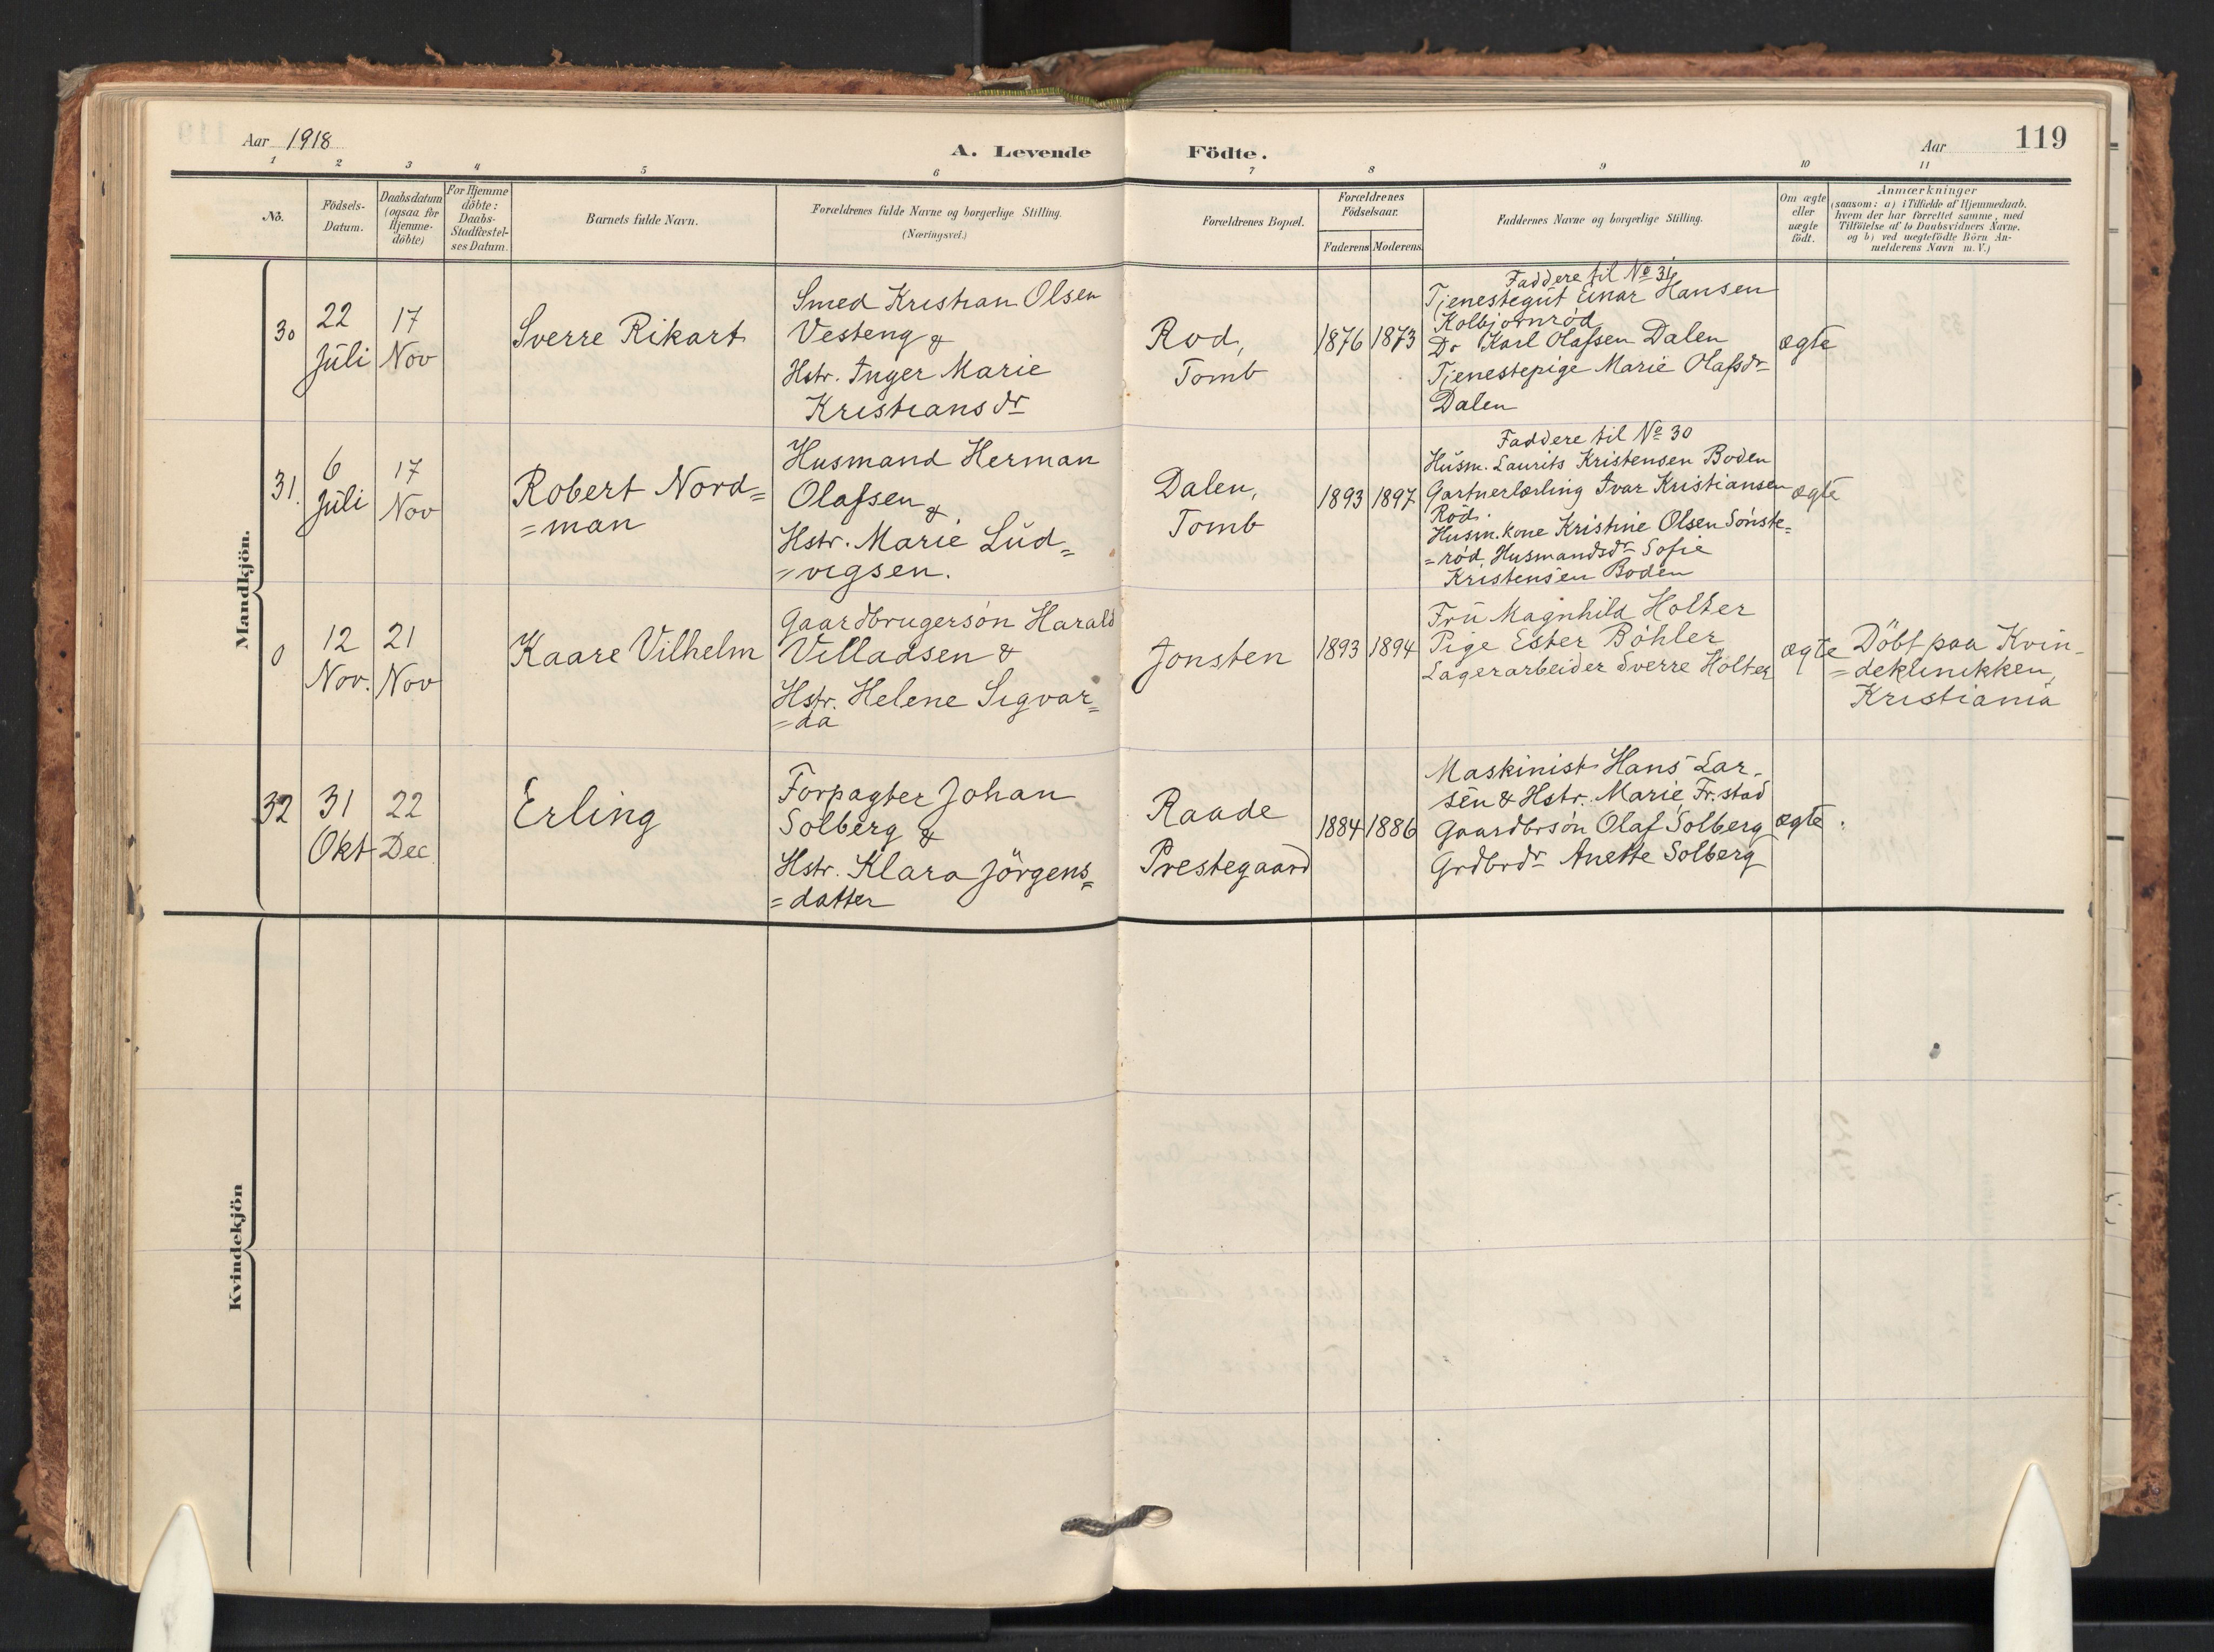 Aar 1918
A. Levende Födte.
Aar 119
1 2 3 4 5 6 7 8 9 10 11
No.
Födsels-
Datum.
Daabsdatum
(ogsaa for
Hjemme-
döbte)
For Hjemme
döbte:
Daabs-
Stadfæstel-
ses Datum.
Barnets fulde Navn.
Forældrenes fulde Navne og borgerlige Stilling.
(Næringsvei.)
Forældrenes Bopæl.
Forældrenes
Födselsaar.
Faderens Moderens
Faddernes Navne og borgerlige Stilling.
Om ægte
eller
uægte
födt.
Anmærkninger
(saasom: a) i Tilfælde af Hjemmedaab,
hvem der har forrettet samme, med
Tilföielse af to Daabsvidners Navne.
og b) ved uægtefödte Börn An-
melderens Navn m. V.)
Mandkjön.
30
22
Juli
17
Nov
Sverre Rikart
Smed Kristian Olsen
Vesteng &
Hstr. Inger Marie
Kristiansdr
Rod,
Tomb
1876
1873
Faddere til No 31
Tjenestegut Einar Hansen
Kolbjörnröd
Do Karl Olafsen Dalen
Tjenestepige Marie Olafsdr
Dalen
ægte
31.
6
Juli
17
Nov
Robert Nord=
=man
Husmand Herman
Olafsen &
Hstr. Marie Lud=
=vigsen.
Dalen,
Tomb
1893
1897
Faddere til No 30
Husm. Laurits Kristensen Boden
Gartnerlærling Ivar Kristiansen
Röd.
Husm.kone Kristine Olsen Sönste=
=röd, Husmandsdr Sofie
Kristensen Boden
ægte
0
12
Nov.
21
Nov
Kaare Vilhelm
Gaardbrugersön Harald
Villadsen &
Hstr. Helene Sigvar=
=da
Jonsten
1893
1894
Fru Magnhild Holter
Pige Ester Böhler
Lagerarbeider Sverre Holter
ægte
Döbt paa Kvin-
=deklinikken,
Kristiania
32
31
Okt
22
Dec.
Erling
Forpagter Johan
Solberg &
Hstr. Klara Jörgens=
=datter
Raade
Prestegaard
1884
1886
Maskinist Hans Lar-
sen & Hstr. Marie, Fr.stad
Gaardbrsön Olaf Solberg
Grdbrdr Anette Solberg
ægte.
Kvindekjön